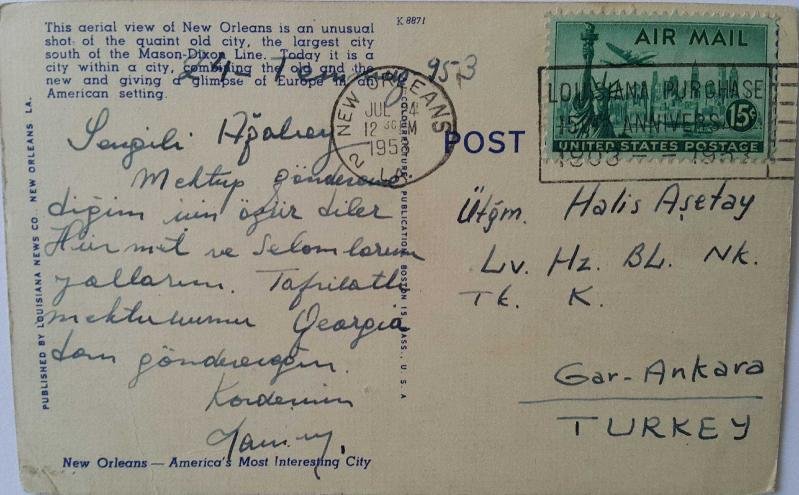 This aerial view of New Orleans is an unusual
shot of the quaint old city, the largest city
south of the Mason-Dixon Line. Today it is a
city within a city, combining the old and the
new and giving a glimpse of Europe in an
American setting.
K 8871
953
NEW ORLEANS
JUL 24
12 30 M
195
2 LA.
AIR MAIL
15¢
UNITED STATES POSTAGE
LOUISIANA PURCHASE
ANNIVERS
1903 - 1953
POST
Sevgili Ağabey
Mektup göndereme
diğim için özür diler
Hürmet ve Selamlarım
yollarım. Tafsilatlı
mektubumu Georgia
dan göndereceğim.
Kardeşinin
Ütğm. Halis Asetay
Lv. Hz. BL. Nk.
Tk. K.
Gar-Ankara
TURKEY
PUBLISHED BY LOUISIANA NEWS CO. NEW ORLEANS LA.
COLOURPICTURE PUBLICATION BOSTON 15, MASS., U. S. A
New Orleans — America's Most Interesting City